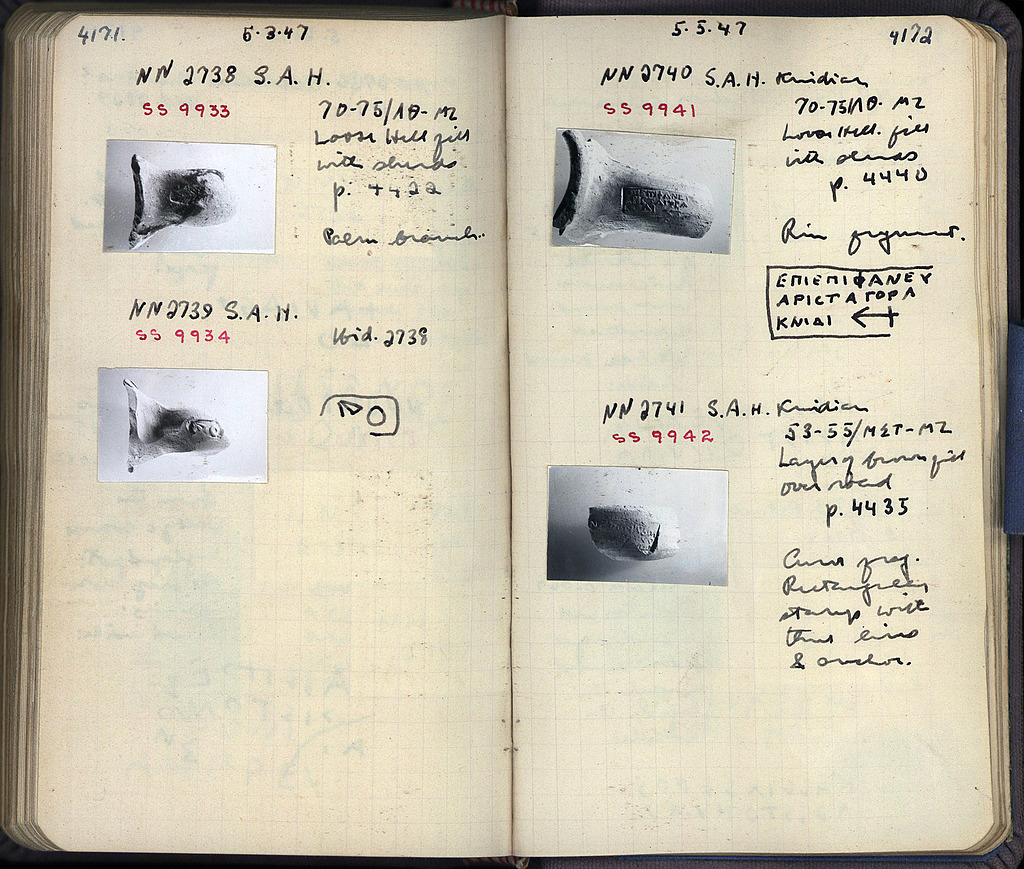 4171.
5·3·47
NN 2738 S.A.H.
SS 9933
70-75/ΛΘ-ΜΖ
Loose Hell fill
with sherds
p. 4422
Palm branch.
NN 2739 S.A.H.
SS 9934
Ibid. 2738
5.5.47
4172
NN 2740 S.A.H. Knidian
SS 9941
70-75/ΛΘ-ΜΖ
Loose Hell. fill
with sherds
p. 4440
Rim fragment.
ΕΠΙΕΠΙΦΑΝΕΥ
ΑΡΙCΤΑΓΟΡΑ
ΚΝΙΔΙ
NN 2741 S.A.H. Knidian
SS 9942
53-55/ΜΣΤ-ΜΖ
Layer of brown fill
over road
p. 4435
Curve frag.
Rectangular
stamp with
three lines
& anchor.